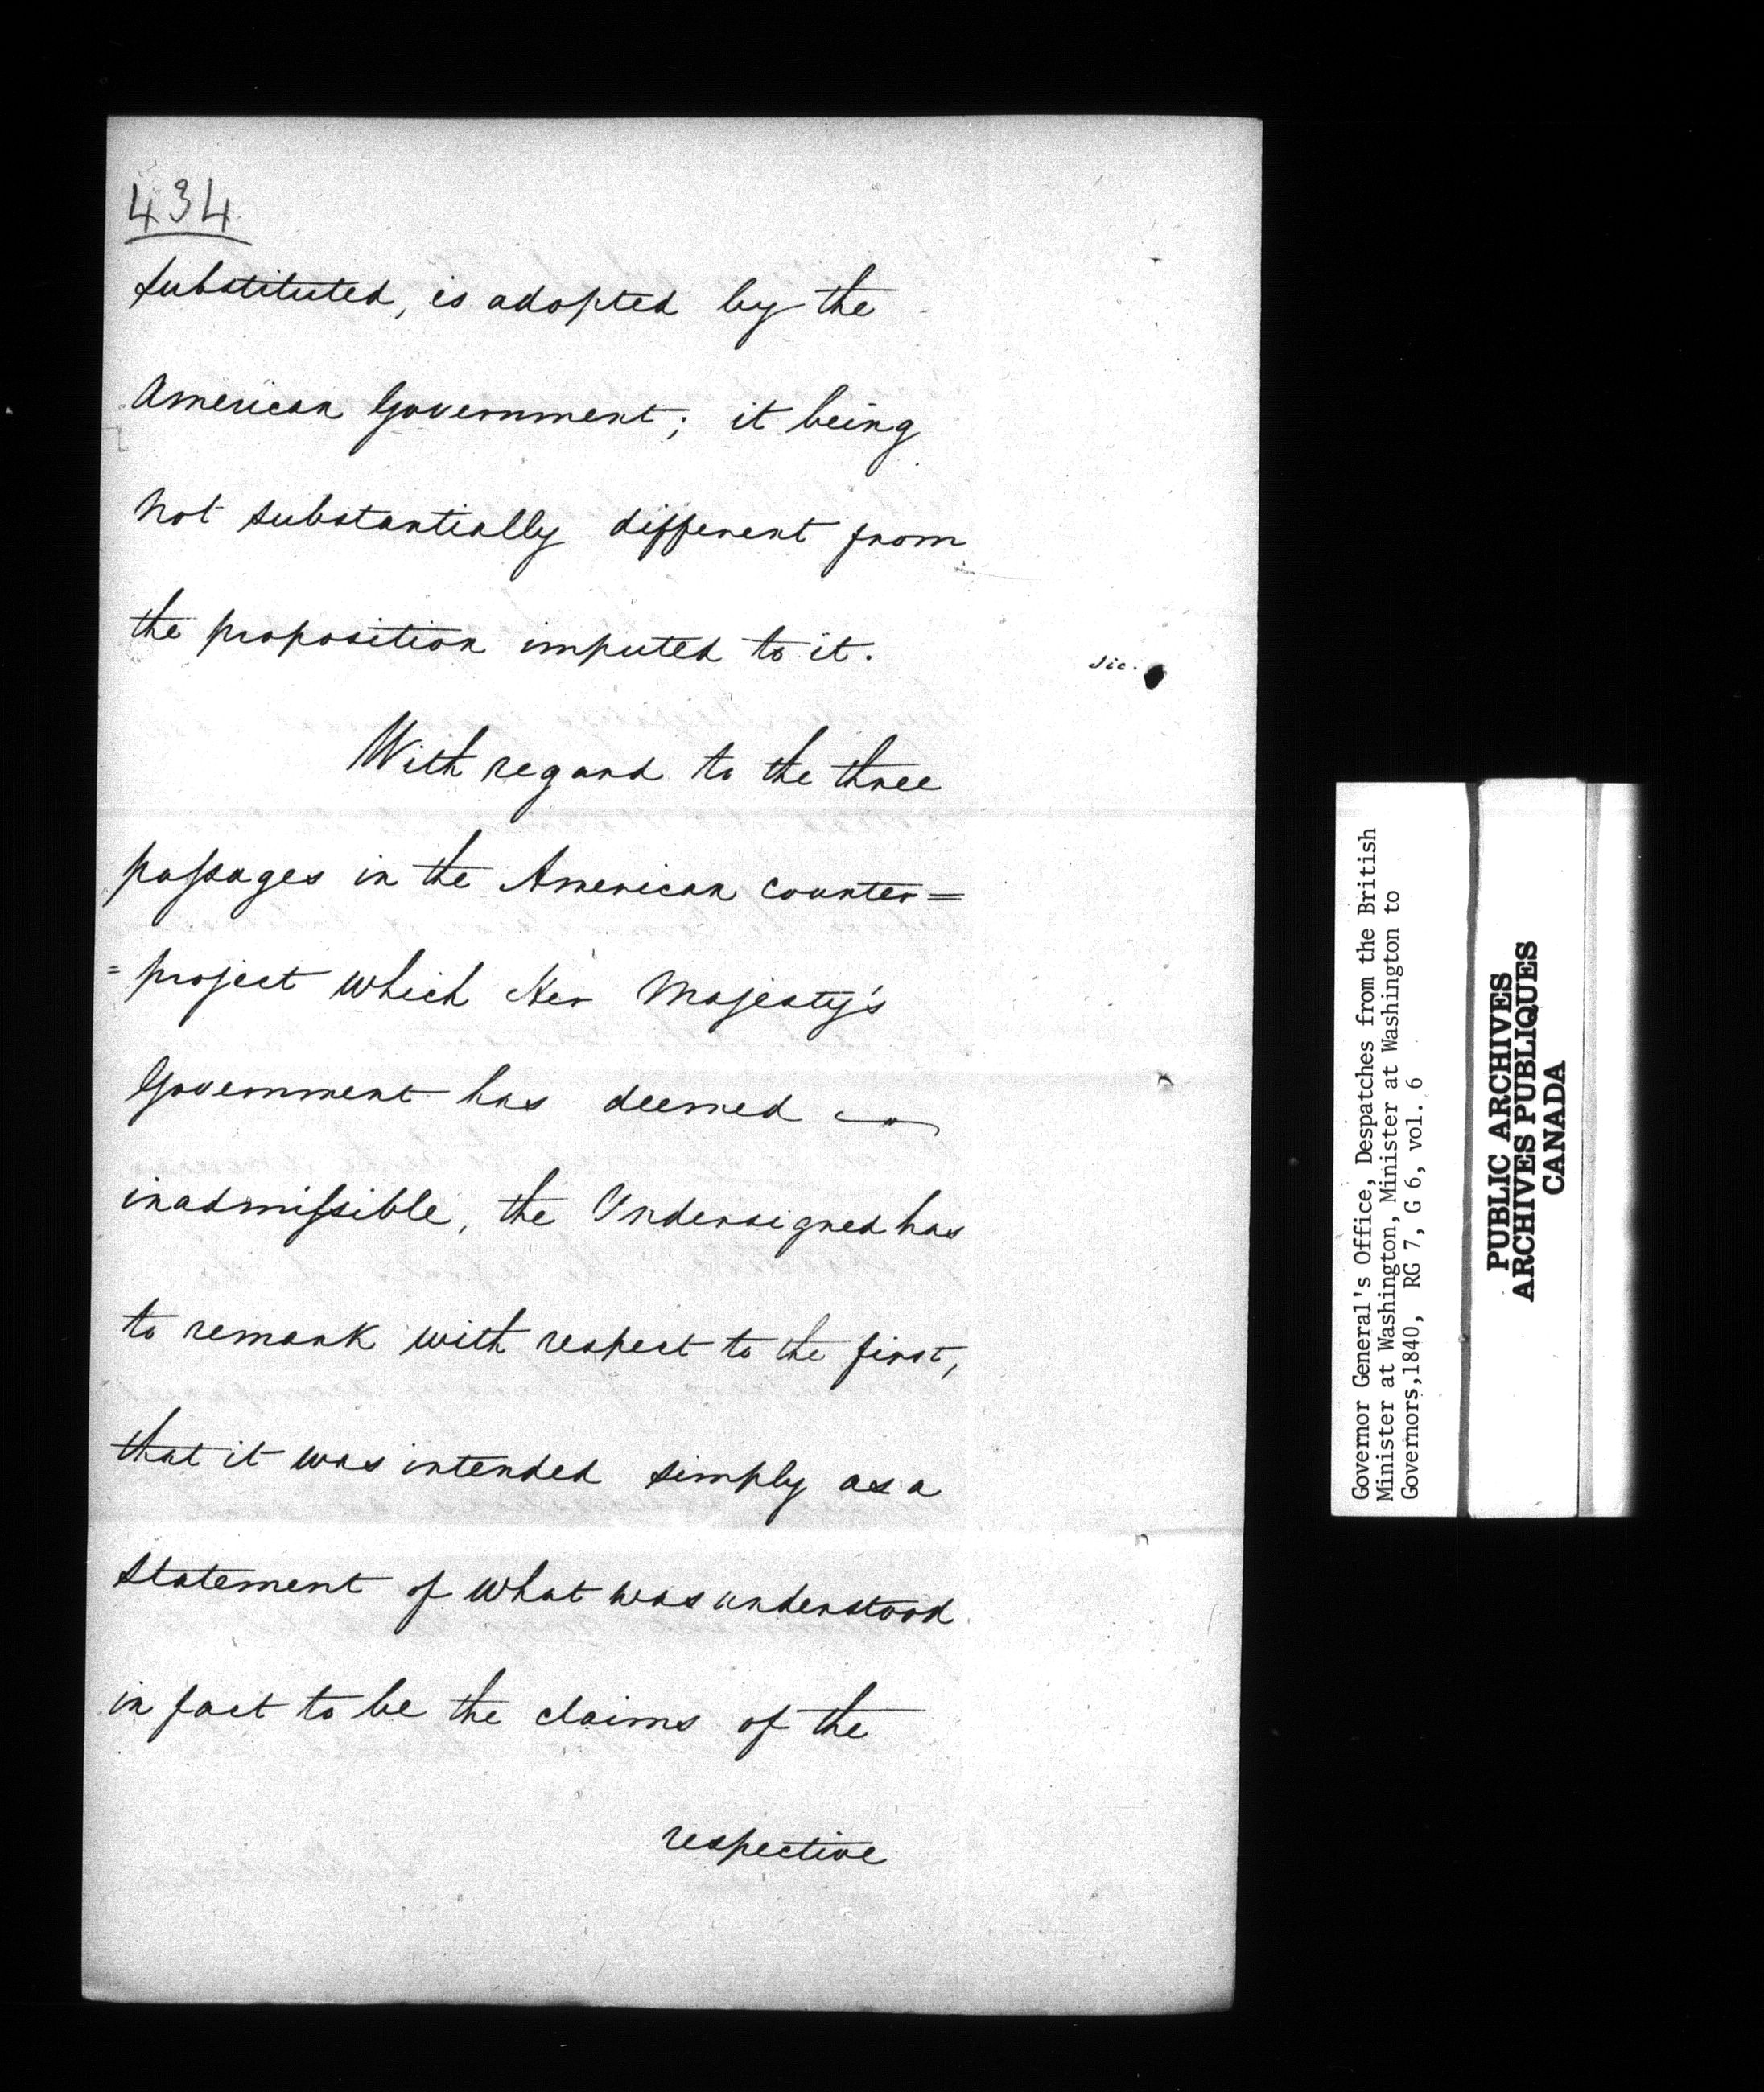 434
substituted, is adopted by the
American Government; it being
not substantially different from
the proposition imputed to it.
sic.
With regard to the three
paſsages in the American counter=
=project which Her Majesty's
Government has deemed
inadmiſsible, the Undersigned has
to remark with respect to the first,
that it was intended simply as a
statement of what was understood
in fact to be the claims of the
respective
Governor General's Office, Despatches from the British
Minister at Washington, Minister at Washington to
Governors,1840, RG 7, G 6, vol. 6
PUBLIC ARCHIVES
ARCHIVES PUBLIQUES
CANADA